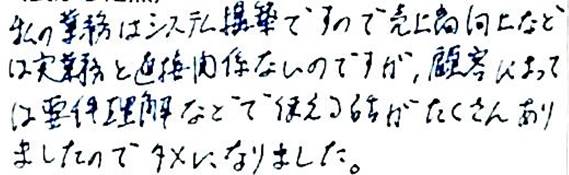 私の業務はシステム構築ですので売上高向上など
は実業務と直接関係ないのですが、顧客によって
は要件理解などで使える話がたくさんあり
ましたのでタメになりました。